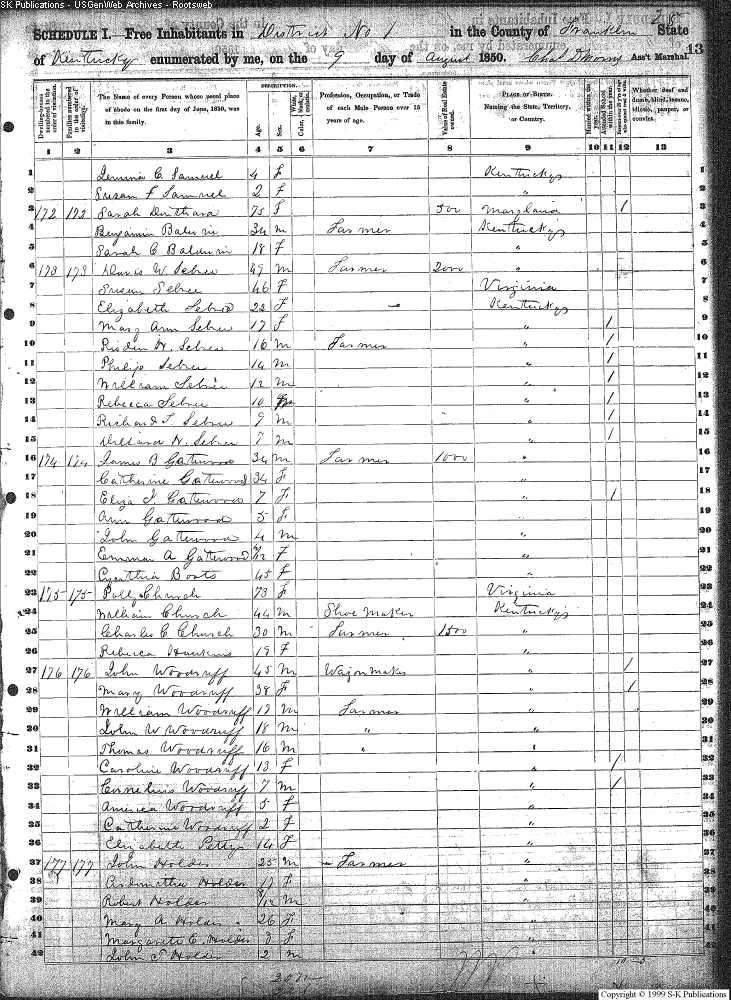 SK Publications - USGenWeb Archives - Rootsweb
SCHEDULE I.—Free Inhabitants in District No 1 in the County of Franklin State
of Kentucky enumerated by me, on the 9 day of August 1850. Ass't Marshal. 13
DESCRIPTION.
Dwelling-houses numbered in the order of visitation. Families numbered in the order of visitation. The Name of every Person whose usual place of abode on the first day of June, 1850, was in this family. Age. Sex. Color, White, black, or mulatto. Profession, Occupation, or Trade of each Male Person over 15 years of age. Value of Real Estate owned. PLACE OF BIRTH. Naming the State, Territory, or Country. Married within the year. Attended School within the year. Whether deaf and dumb, blind, insane, idiotic, pauper, or convict.
1 2 3 4 5 6 7 8 9 10 11 12 13
1 C. Samuel 4 F Kentucky 1
2 Susan F Samuel 2 F " 2
3 172 172 Sarah 75 F 500 Maryland / 3
4 Benjamin Baldwin 34 M Farmer Kentucky 4
5 Sarah C Baldwin 18 F " 5
6 173 173 W Sebree 49 M Farmer 2000 " 6
7 Susan Sebree 46 F Virginia 7
8 Elizabeth Sebree 22 F Kentucky 8
9 Mary Ann Sebree 17 F " / 9
10 H. Sebree 16 M Farmer " / 10
11 Philip Sebree 14 M " / 11
12 William Sebree 12 M " / 12
13 Rebecca Sebree 10 " / 13
14 Richard T. Sebree 9 M " / 14
15 H. Sebree 7 M " / 15
16 174 174 James B Gatewood 34 M Farmer 1000 " 16
17 Catherine Gatewood 34 F 17
18 Eliza J Gatewood 7 F " / 18
19 Ann Gatewood 5 F " 19
20 John Gatewood 4 M " 20
21 Emma A Gatewood /12 F " 21
22 Cynthia Boots 45 F " 22
23 175 175 Polly Church 73 F Virginia 23
24 William Church 44 M Shoe Maker Kentucky 24
25 Charles C Church 30 M Farmer 1500 " 25
26 Rebecca Hawkins 19 F 26
27 176 176 John Woodruff 45 M Wagon Maker " / 27
28 Mary Woodruff 38 F " / 28
29 William Woodruff 19 M Farmer " 29
30 John W Woodruff 18 M " " 30
31 Thomas Woodruff 16 M " " 31
32 Caroline Woodruff 13 F " / 32
33 Cornelius Woodruff 7 M " / 33
34 America Woodruff 5 F " 34
35 Catherine Woodruff 2 F " 35
36 Elizabeth Pettys 14 F " 36
37 177 177 John Holder 25 M Farmer " 37
38 Holder 17 F " 38
39 Robert Holder /12 M " 39
40 Mary A Holder 26 F " 40
41 Margarett C. Holder 3 F " 41
42 John T Holder 2 M " 42
Copyright © 1999 S-K Publications